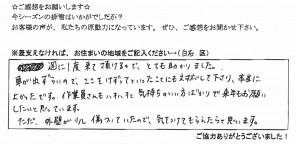 ☆ご感想をお願いします☆
今シーズンの排雪はいかがでしたか?
お客様の声が、私たちの原動力になっています。 ぜひ、ご感想をお聞かせ下さい。
※差支えなければ、お住まいの地域をご記入ください…(白石 区)
週に1度来て頂けるので、とても助かりました。
車が出ずらいので、ここもけずってといったことにも対応して下さり、本当に
よかったです。作業員さんもハキハキと気持ちのいい方ばかりで来年もお願い
したいと思っています。
ただ、外壁が少し傷ついていたので、気を付けてもらえたらと思います。
ご協力ありがとうございました!